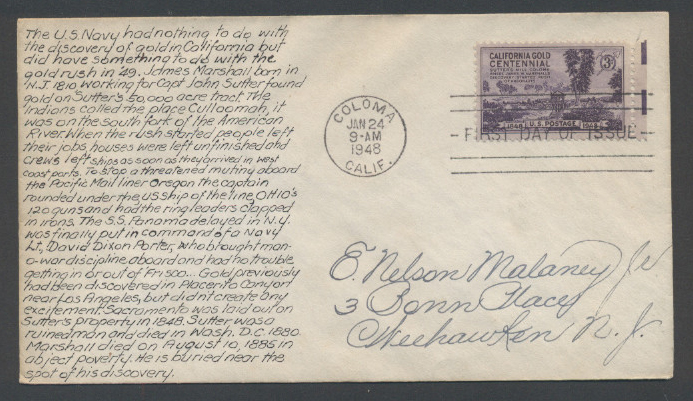 The U.S. Navy had nothing to do with
the discovery of gold in California but
did have something to do with the
gold rush in '49. James Marshall born in
N.J. 1810 working for Capt John Sutter found
gold on Sutter's 50,000 acre tract. The
Indians called the place Culloomah, it
was on the south fork of the American
River. When the rush started people left
their jobs, houses were left unfinished and
crews left ships as soon as they arrived in west
coast ports. To stop a threatened mutiny aboard
the Pacific Mail liner Oregon the captain
rounded under the US ship of the line, OHIO's
120 guns and had the ring leaders clapped
in irons. The S.S. Panama delayed in N.Y.
was finally put in command of a Navy
Lt, David Dixon Porter, who brought man-
o-war discipline aboard and had no trouble
getting in or out of Frisco... Gold previously
had been discovered in Placerto Canyon
near Los Angeles, but didn't create any
excitement. Sacramento was laid out on
Sutter's property in 1848. Sutter was a
ruined man and died in Wash. D.C. 1880
Marshall died on August 10, 1885 in
abject poverty. He is buried near the
spot of his discovery.
COLOMA
JAN 24
9-AM
1948
CALIF.
CALIFORNIA GOLD
CENTENNIAL
SUTTER'S MILL, COLOMA
3¢
1848 U.S. POSTAGE 1948
FIRST DAY OF ISSUE
E. Nelson Malaney Jr
3 Bonn Place
Weehawken N. J.